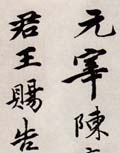 元宰陳
君王賜告